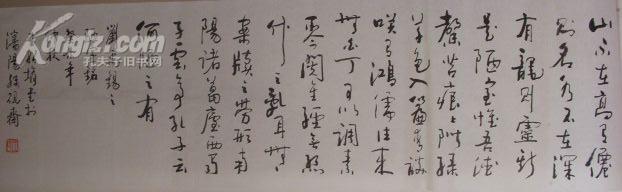 山不在高有仙
则名水不在深
有龙则灵斯
是陋室惟吾德
馨苔痕上阶绿
草色入帘青谈
笑有鸿儒往来
无白丁可以调素
琴阅金经无丝
竹之乱耳无
案牍之劳形南
阳诸葛庐西蜀
子云亭孔子云
何陋之有
刘禹锡之